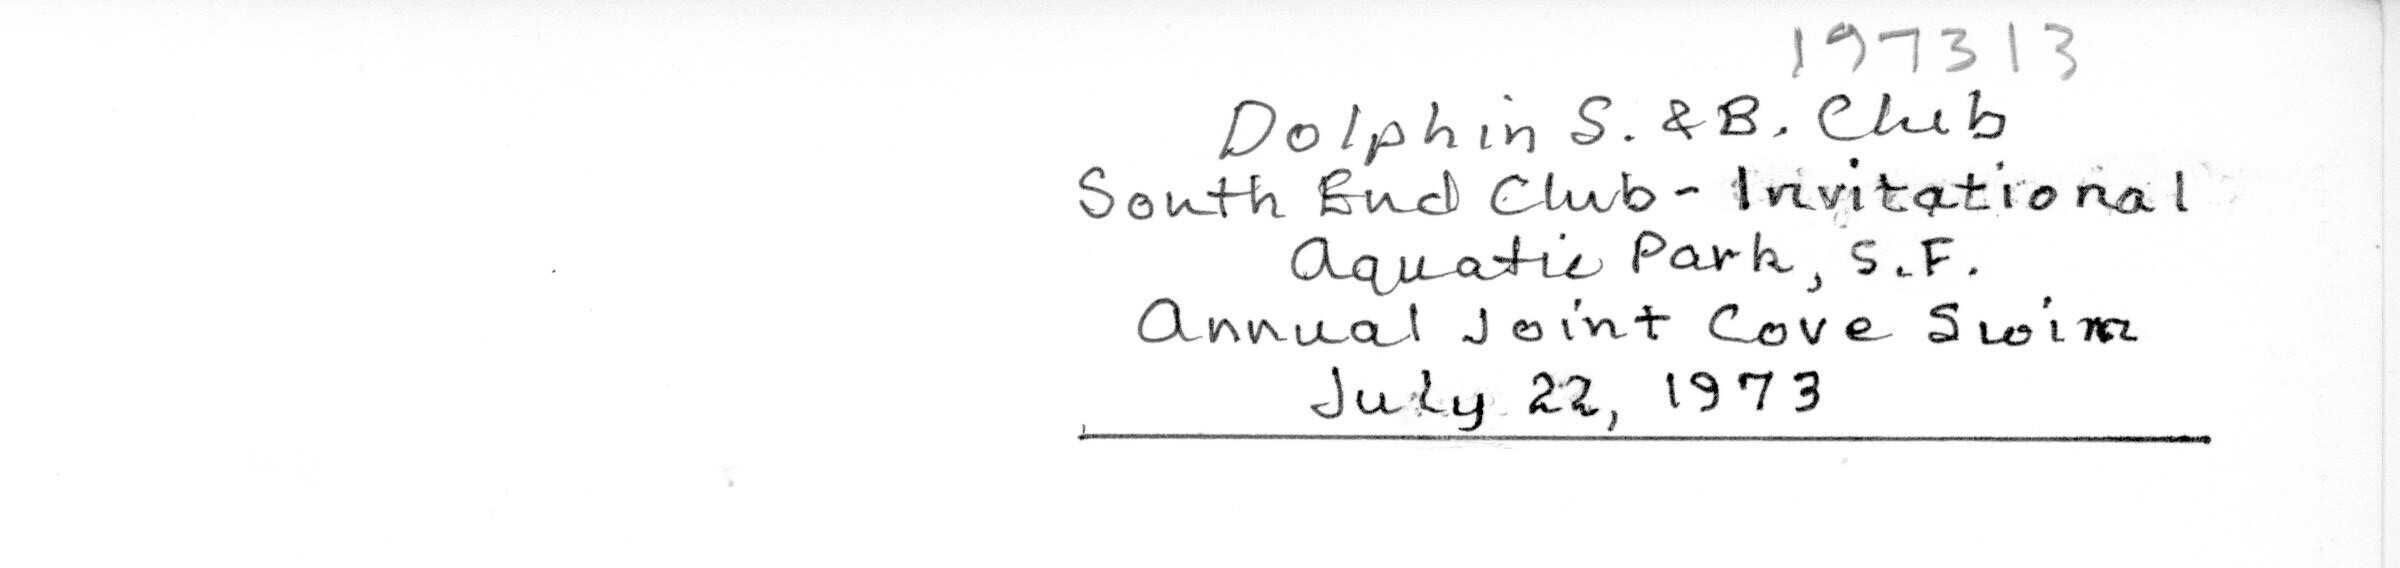 197313
Dolphin S. & B. Club
South End Club - Invitational
Aquatic Park, S.F.
Annual Joint Cove Swim
July 22, 1973